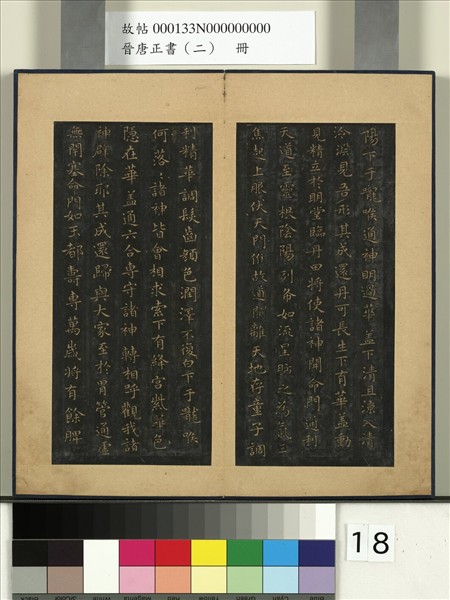 故帖 000133N000000000
晉唐正書（二） 冊
陽下于嚨喉通神明過華蓋下清且涼入清
泠淵見吾形其成還丹可長生下有華蓋動
見精立於明堂臨丹田將使諸神開命門通利
天道至靈根陰陽列布如流星肺之為氣三
焦起上服伏天門候故道闚離天地存童子調
利精華調髮齒顏色潤澤不復白下于嚨喉
何落〻諸神皆會相求索下有絳宮紫華色
隱在華蓋通六合專守諸神轉相呼觀我諸
神辟除耶其成還歸與大家至於胃管通虛
無閉塞命門如玉都壽專萬歲將有餘脾
18
Black 3/Color White Magenta Red Yellow Green Cyan Blue